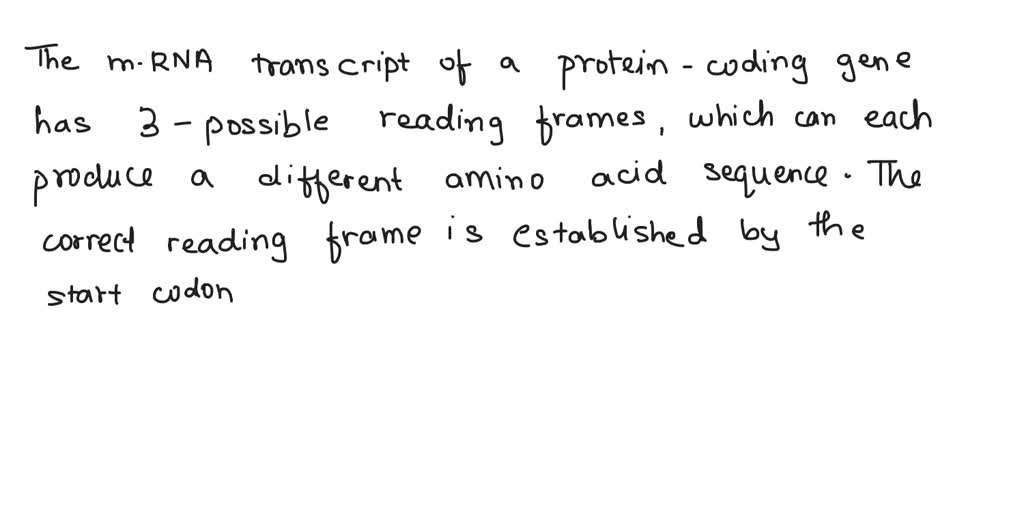 The m.RNA transcript of a protein - coding gene
has 3 - possible reading frames, which can each
produce a different amino acid sequence. The
correct reading frame is established by the
start codon